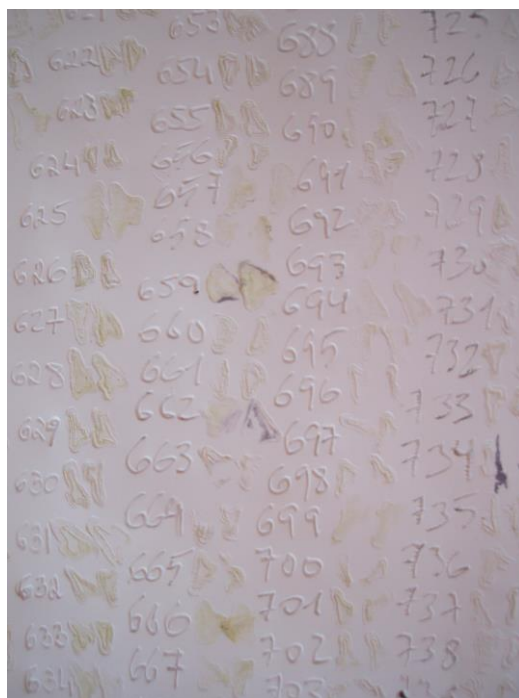 622
623
624
625
626
627
628
629
630
631
632
633
634
653
654
655
656
657
658
659
660
661
662
663
664
665
666
667
688
689
690
691
692
693
694
695
696
697
698
699
700
701
702
703
725
726
727
728
729
730
731
732
733
734
735
736
737
738